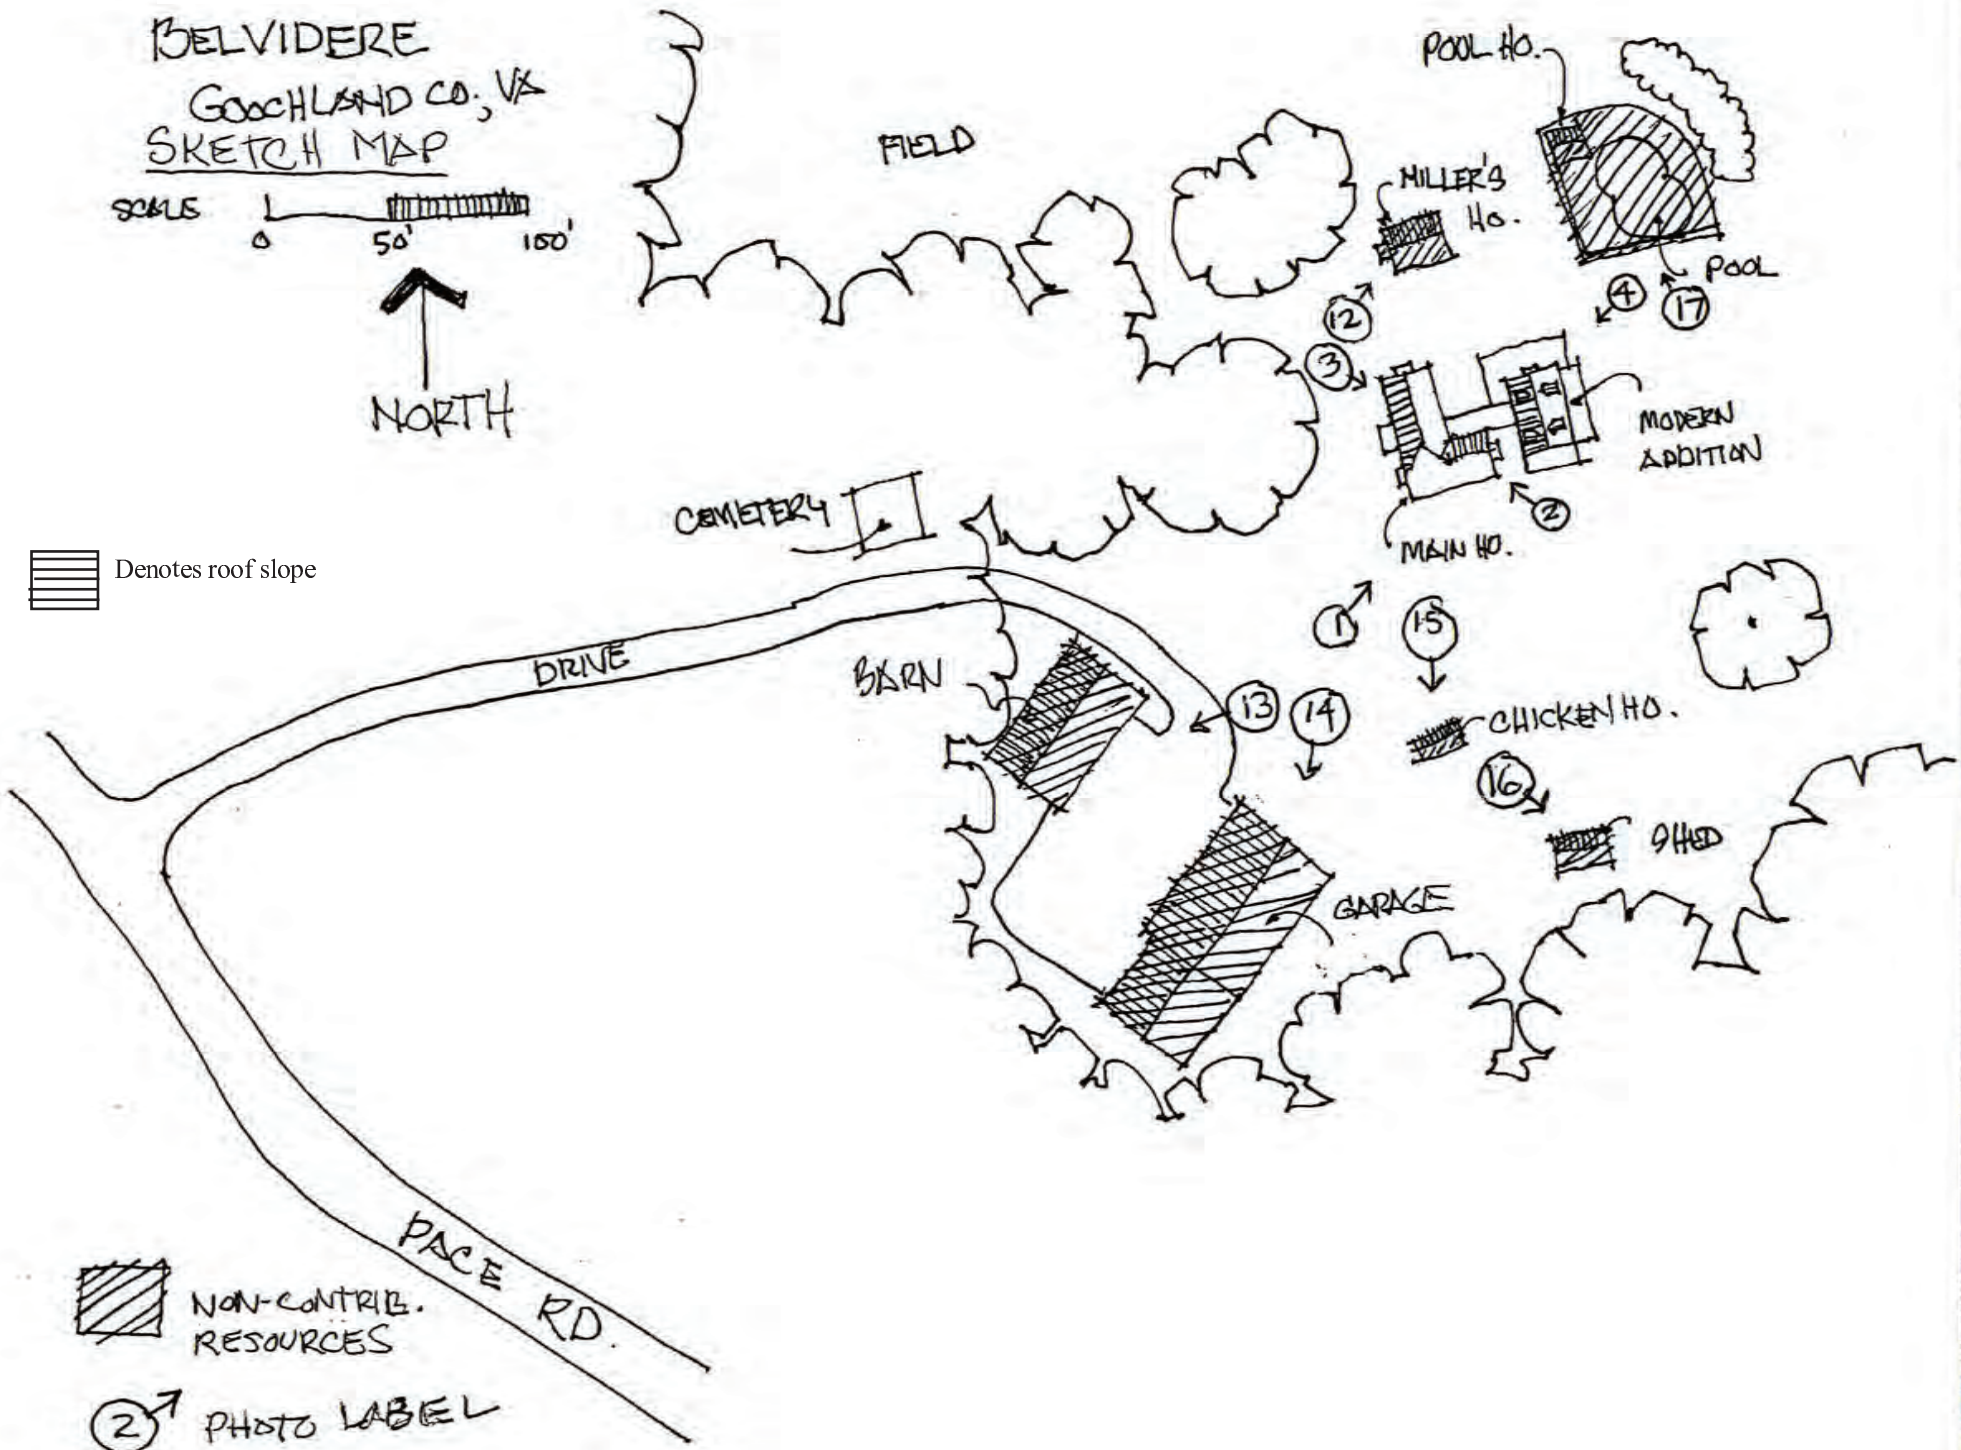 BELVIDERE
GOOCHLAND CO., VA
SKETCH MAP
SCALE
0 50' 100'
NORTH
FIELD
POOL HO.
MILLER'S
HO.
POOL
12
3
4
17
MODERN
ADDITION
2
MAIN HO.
CEMETERY
Denotes roof slope
1
15
DRIVE
BARN
13
14
CHICKEN HO.
16
SHED
GARAGE
PACE RD.
NON-CONTRIB.
RESOURCES
2 PHOTO LABEL